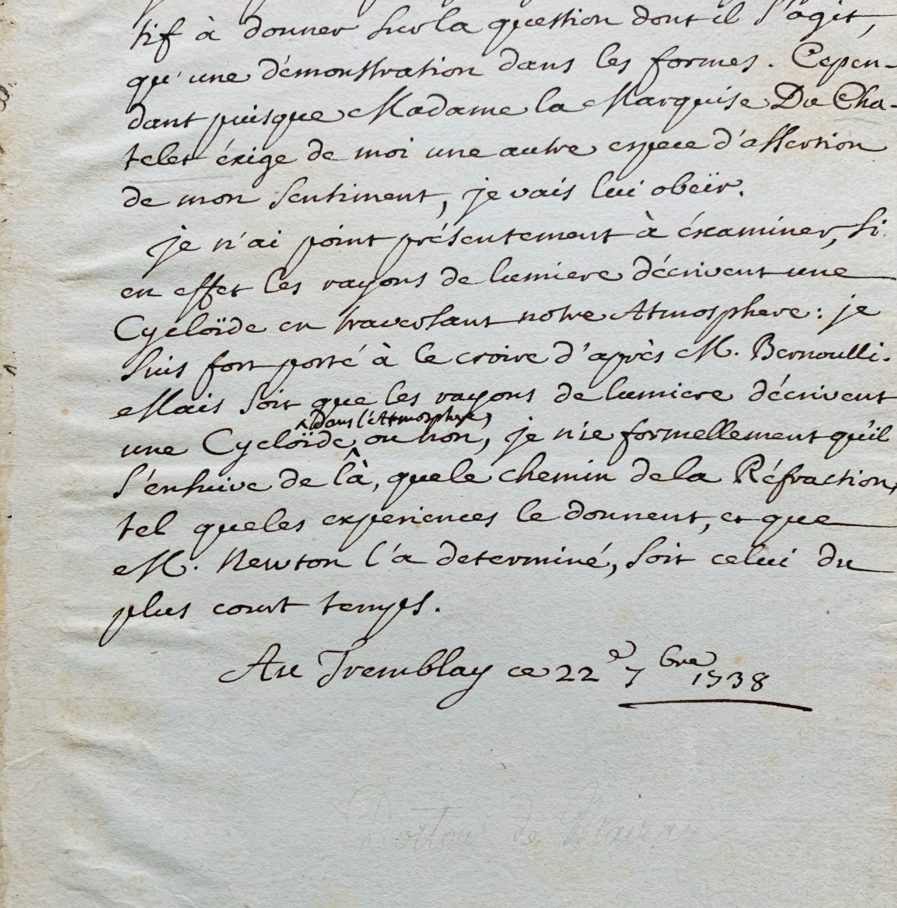 tif à donner sur la question dont il s'agit,
qu'une démonstration dans les formes. Cepen-
dant puisque Madame la Marquise Du Cha-
telet éxige de moi une autre espece d'assertion
de mon sentiment, je vais lui obeïr.
je n'ai point présentement à éxaminer, si
en effet les rayons de lumiere décrivent une
Cycloïde en traversant notre Atmosphere: je
suis fort porté à le croire d'après M. Bernoulli.
Mais soit que les rayons de lumiere décrivent
dans l'Atmosphere
une Cycloïde, ou non, je nie formellement qu'il
s'ensuive de là, que le chemin de la Réfraction,
tel que les experiences le donnent, et que
M. Newton l'a determiné, soit celui du
plus court temps.
Au Tremblay ce 22e 7bre 1738
Dortous de Mairan